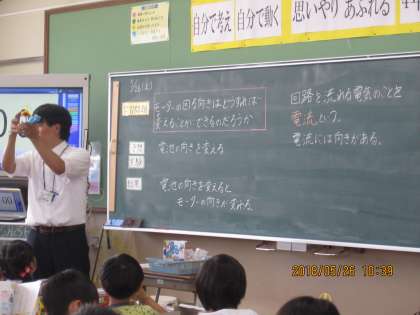 自分で考え
自分で動く
思いやり あふれる
5/26(土)
モーターの回る向きはどうすれば
変えることができるのだろうか
電池の向きを変える
電池の向きを変えると
モーターの向きが変わる。
回路を流れる電気のことを
電流という。
電流には向きがある。
2018/05/26 10:39